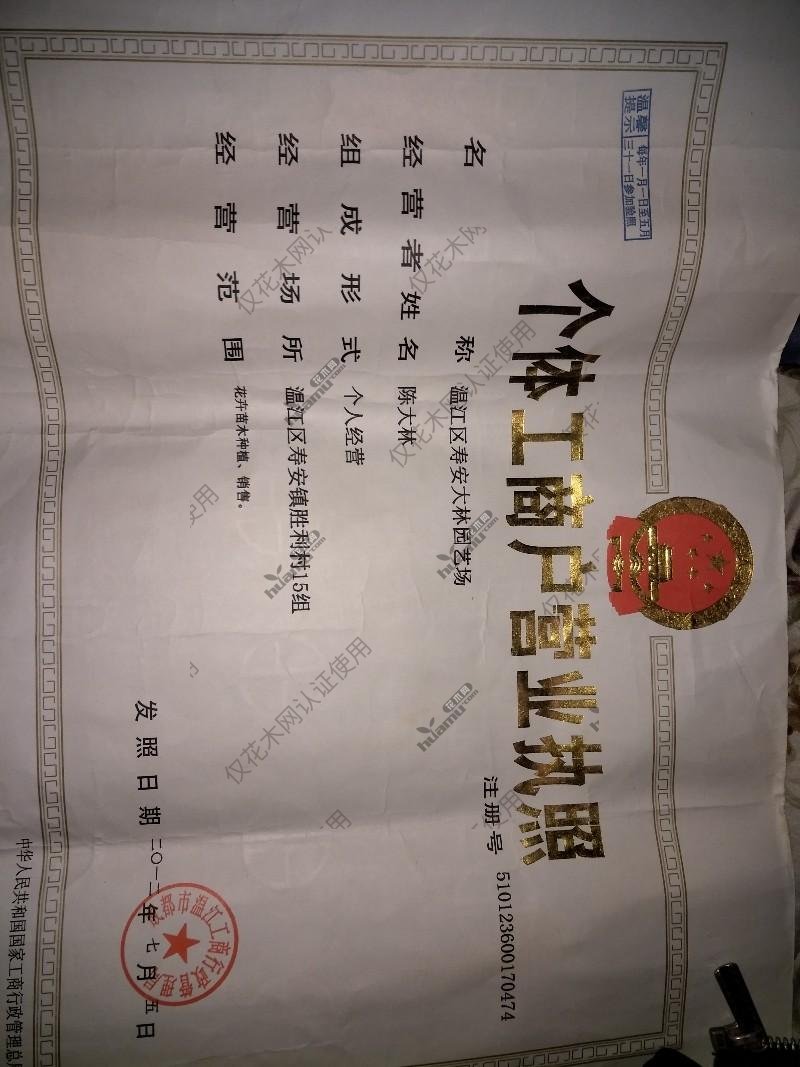 温馨提示 每年一月一日至五月三十一日参加验照
个体工商户营业执照
注册号 510123600170474
名称 温江区寿安大林园艺场
经营者姓名 陈大林
组成形式 个人经营
经营场所 温江区寿安镇胜利村15组
经营范围 花卉苗木种植、销售。
发照日期 二〇一二年七月五日
成都市温江工商行政管理局
中华人民共和国国家工商行政管理总局
仅花木网认证使用
仅花木网认证使用
仅花木网认证使用
花木网
huamu.com
花木网
huamu.com
花木网
huamu.com
花木网
huamu.com